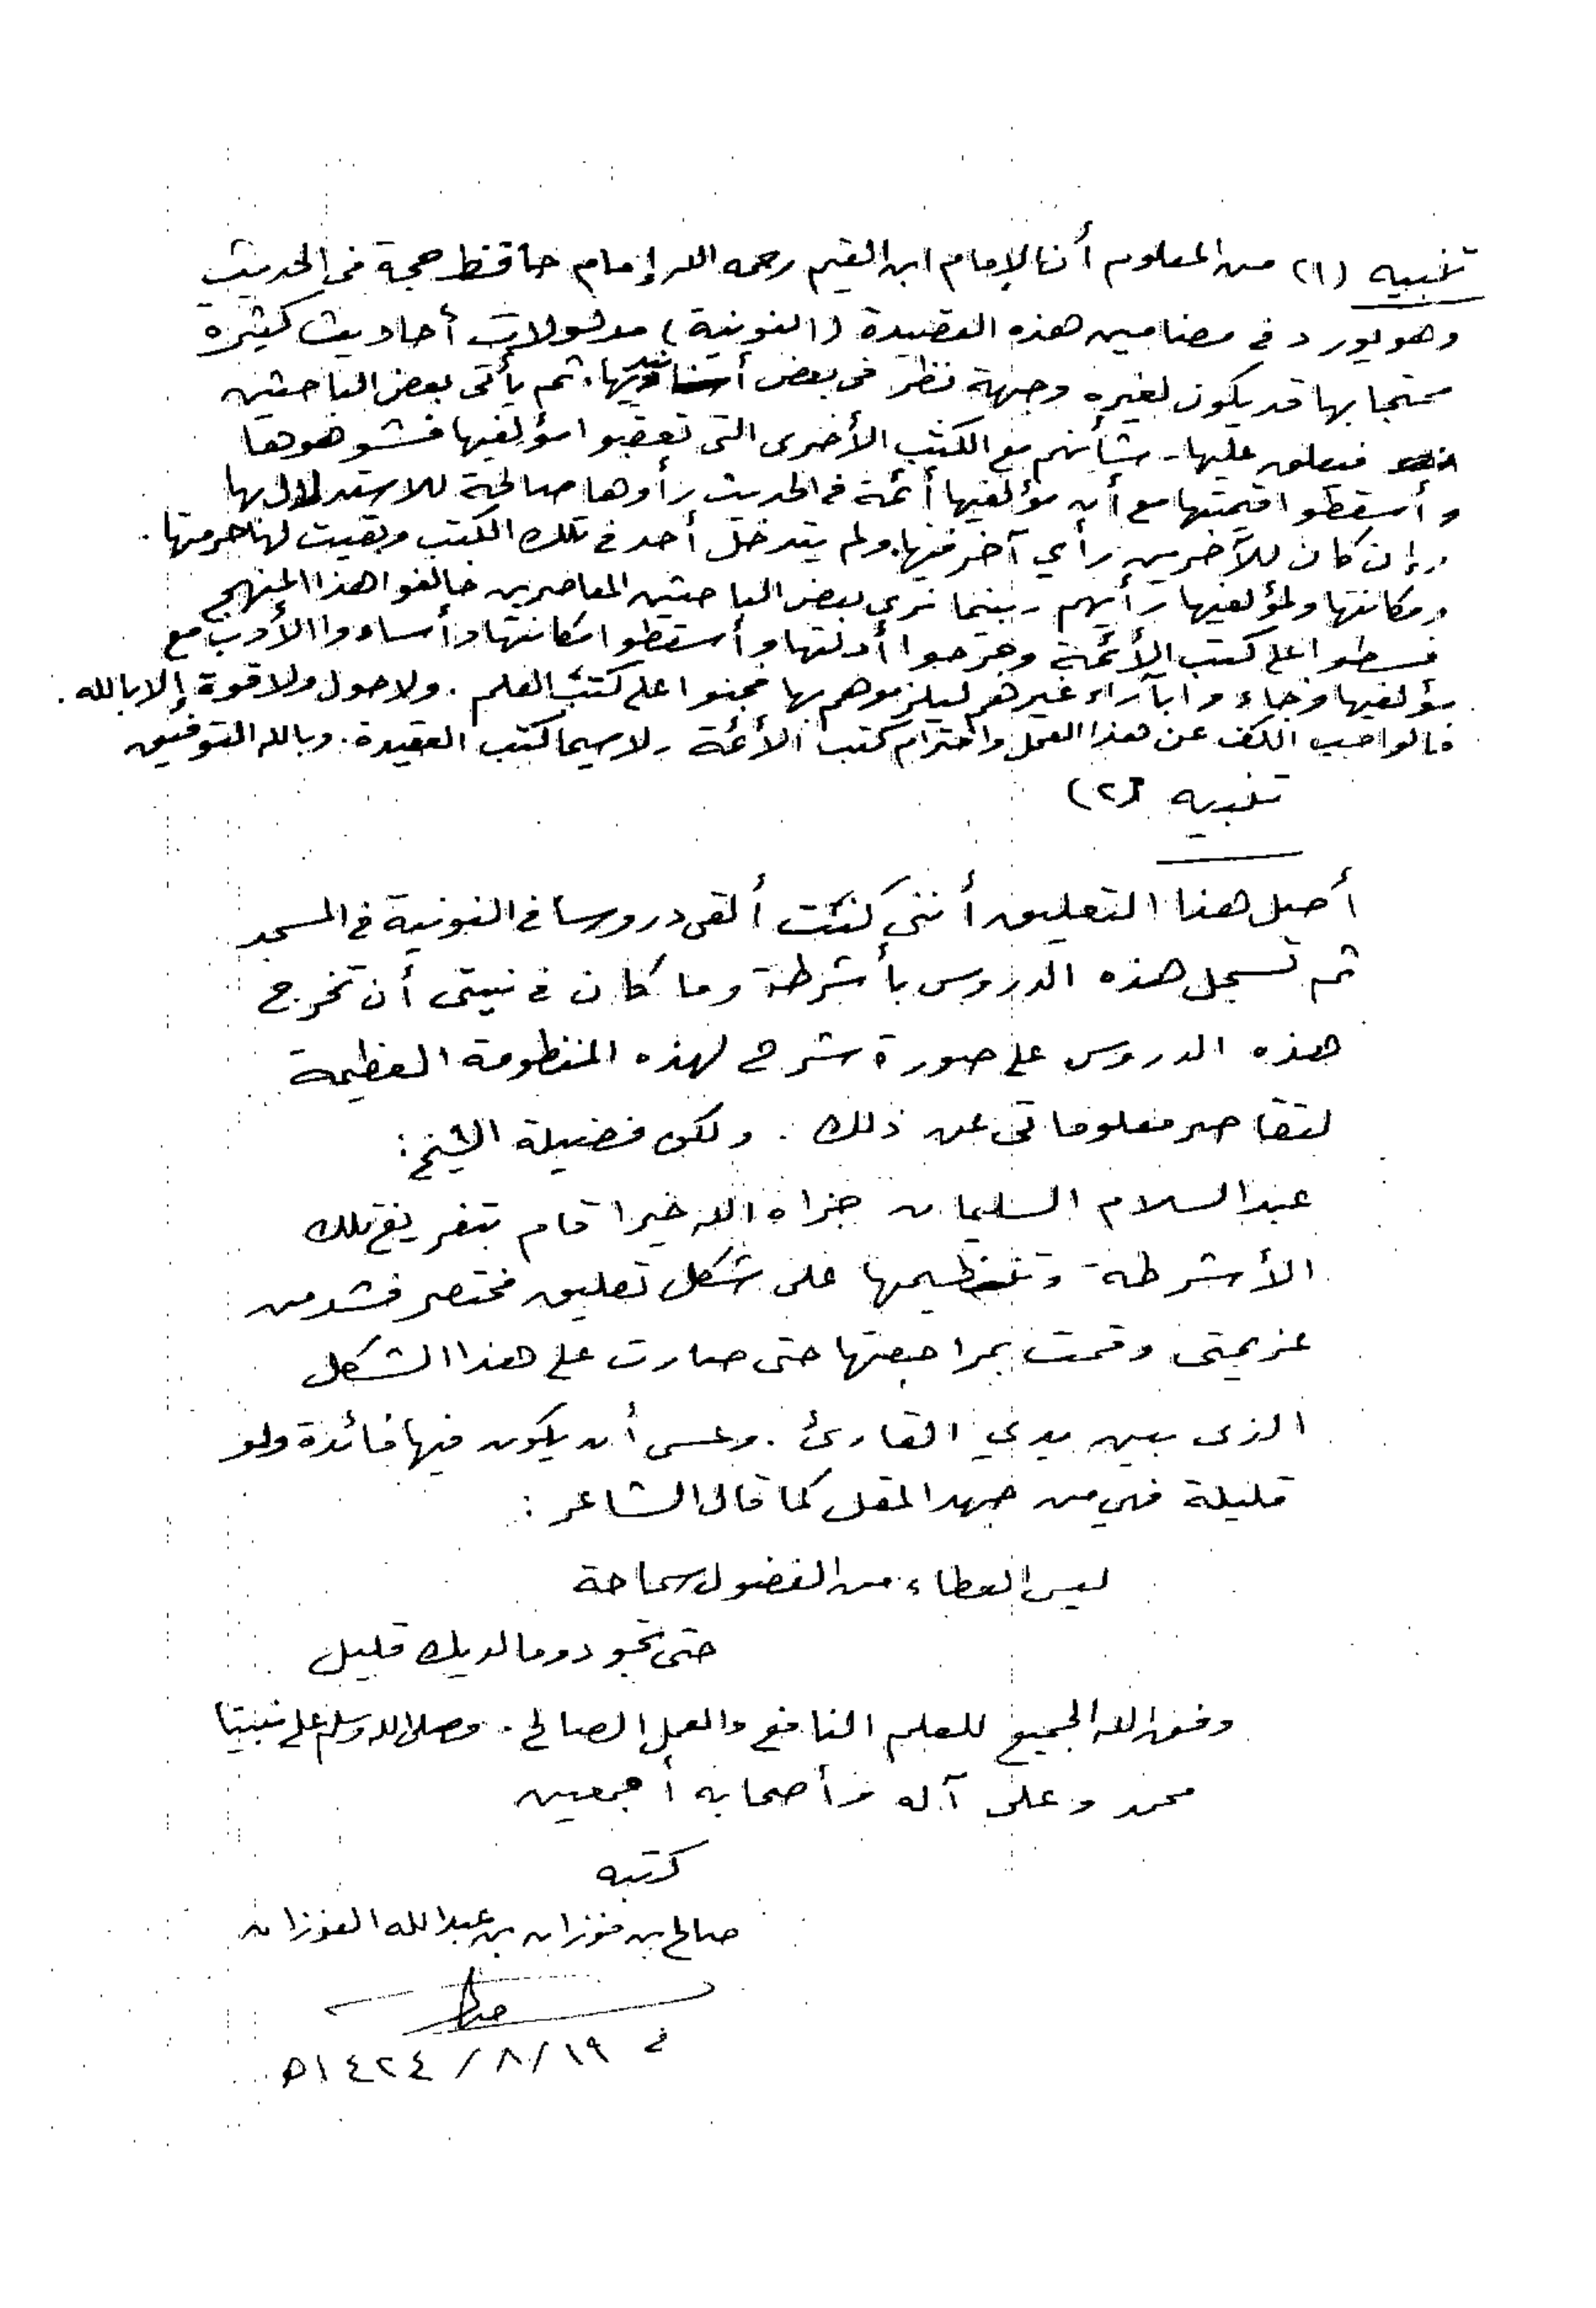 تنبيه (١) من المعلوم أن الإمام ابن القيم رحمه الله إمام حافظ حجة في الحديث
وهو يورد في مضامين هذه القصيدة (النونية) مدلولات أحاديث كثيرة
محتجا بها قد يكون لغيره وجهة نظر في بعض أسانيدها. ثم يأتي بعض الباحثين
فيعلق عليها - شأنهم مع الكتب الأخرى التي تعقبوا مؤلفيها فشوهوها
وأسقطوا قيمتها مع أن مؤلفيها أئمة في الحديث رأوها صالحة للاستدلال بها
وإن كان للآخرين رأي آخر فيها. ولم يتدخل أحد في تلك الكتب وبقيت لها حرمتها.
ومكانتها ولمؤلفيها رأيهم - بينما نرى بعض الباحثين المعاصرين خالفوا هذا المنهج
فسطوا على كتب الأئمة وجرحوا أدلتها وأسقطوا مكانتها وأساءوا الأدب مع
مؤلفيها وجاءوا بآراء غيرهم ليلزموهم بها فجنوا على كتب العلم. ولا حول ولا قوة إلا بالله.
فالواجب الكف عن هذا العمل واحترام كتب الأئمة ولاسيما كتب العقيدة. وبالله التوفيق
تنبيه (٢)
أصل هذا التعليق أنني كنت ألقي دروسا في النونية في المسجد
ثم تسجل هذه الدروس بأشرطة وما كان في نيتي أن تخرج
هذه الدروس على صورة شرح لهذه المنظومة العظيمة
لتقاصر معلوماتي عن ذلك. ولكن فضيلة الشيخ:
عبدالسلام السليمان جزاه الله خيرا قام بتفريغ تلك
الأشرطة وتنظيمها على شكل تعليق مختصر فشد من
عزيمتي وقمت بمراجعتها حتى صارت على هذا الشكل
الذي بين يدي القارئ. وعسى أن يكون فيها فائدة ولو
قليلة فهي من جهد المقل كما قال الشاعر:
ليس العطاء من الفضول سماحة
حتى تجود وما لديك قليل
وفق الله الجميع للعلم النافع والعمل الصالح. وصلى الله وسلم على نبينا
محمد وعلى آله وأصحابه أجمعين
كتبه
صالح بن فوزان بن عبدالله الفوزان
في ١٩/٨/١٤٢٤هـ